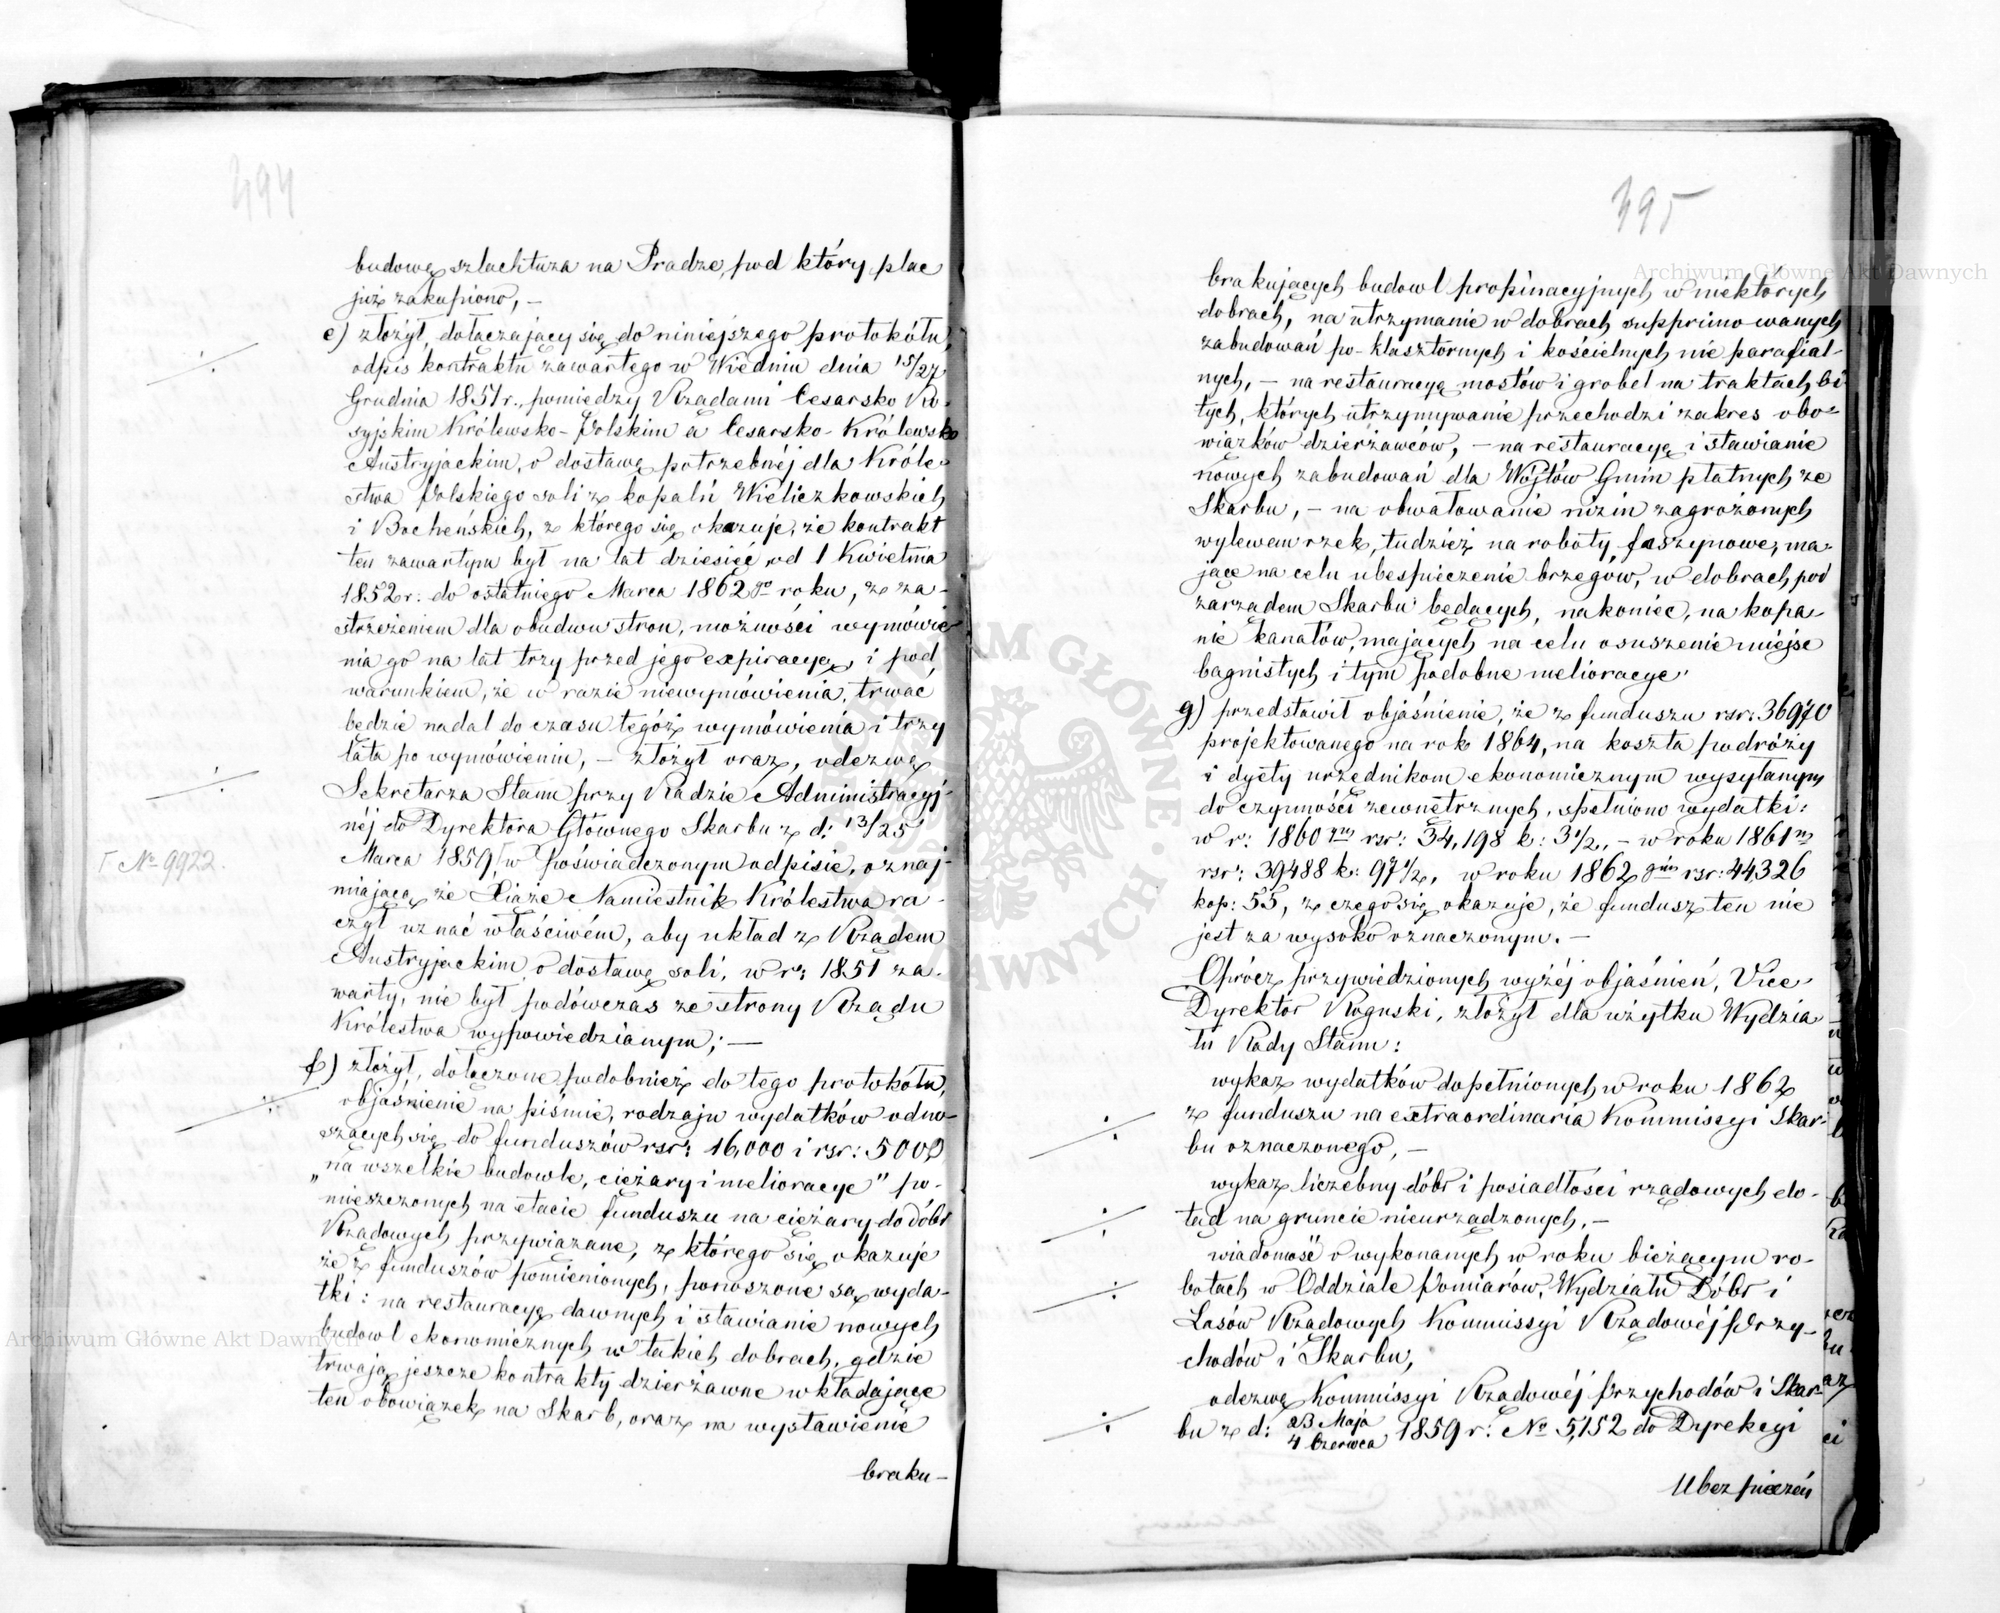 494
budowę szlachtuza na Pradze, pod który plac
już zakupiono, —
e) złożył, dołączający się do niniejszego protokółu,
odpis kontraktu zawartego w Wiedniu dnia 15/27
Grudnia 1851 r., pomiędzy Rządami Cesarsko Ro-
syjskim Królewsko-Polskim a Cesarsko-Królewsko
Austryjackim, o dostawę potrzebnéj dla Króle-
stwa Polskiego soli z kopalń Wieliczkowskich
i Bocheńskich, z którego się okazuje, że kontrakt
ten zawartym był na lat dziesięć od 1 Kwietnia
1852 r: do ostatniego Marca 1862go roku, z za-
strzeżeniem dla obudwu stron, możności wymówie
nia go na lat trzy przed jego expiracyą, i pod
warunkiem, że w razie niewymówienia, trwać
będzie nadal do czasu tegóż wymówienia i trzy
lata po wymówieniu, — złożył oraz, odezwę
Sekretarza Stanu przy Radzie Administracyj-
néj do Dyrektora Głównego Skarbu z d: 13/25
Marca 1859, Γ w poświadczonym odpisie, oznaj-
Γ No 9922.
miającą, że Xiąże Namiestnik Królestwa ra-
czył uznać właściwém, aby układ z Rządem
Austryjackim o dostawę soli, w r: 1851 za-
warty, nie był podówczas ze strony Rządu
Królestwa wypowiedzianym; —
f) złożył, dołączone podobnież do tego protokółu,
objaśnienie na piśmie, rodzaju wydatków odno-
szących się do funduszów rsr: 16,000 i rsr: 5000
„na wszelkie budowle, ciężary i melioracye" po-
mieszczonych na etacie funduszu na ciężary do dóbr
Rządowych przywiązane, z którego się okazuje
że z funduszów pomienionych, ponoszone są wyda-
tki: na restauracyę dawnych i stawianie nowych
budowl ekonomicznych w takich dobrach, gdzie
trwają jeszcze kontrakty dzierżawne wkładające
ten obowiązek na Skarb, oraz na wystawienie
braku-
395
brakujących budowl propinacyjnych w niektórych
dobrach, na utrzymanie w dobrach supprimowanych
zabudowań po-klasztornych i kościelnych nie parafial-
nych, — na restauracyę mostów i grobel na traktach bi
tych, których utrzymywanie przechodzi zakres obo-
wiązków dzierżawców, — na restauracyę i stawianie
nowych zabudowań dla Wójtów Gmin płatnych ze
Skarbu, — na obwałowanie nizin zagrożonych
wylewem rzek, tudzież na roboty faszynowe, ma-
jące na celu ubespieczenie brzegów, w dobrach pod
zarządem Skarbu będących, nakoniec, na kopa-
nie kanałów, mających na celu osuszenie miejsc
bagnistych i tym podobne melioracye.
g) przedstawił objaśnienie, że z funduszu rsr: 36970
projektowanego na rok 1864, na koszta podróży
i dyety urzędnikom ekonomicznym wysyłanym
do czynności zewnętrznych, spełniono wydatki:
w r: 1860ym rsr: 34,198 k: 3½, — w roku 1861ym
rsr: 39488 k: 97½, w roku 1862gim rsr: 44,326
kop: 55, z czego się okazuje, że fundusz ten nie
jest za wysoko oznaczonym. —
Oprócz przywiedzionych wyżéj objaśnień, Vice-
Dyrektor Roguski, złożył dla użytku Wydzia-
łu Rady Stanu:
wykaz wydatków dopełnionych w roku 1862
z funduszu na extraordinaria Kommissyi Skar-
bu oznaczonego, —
wykaz liczebny dóbr i posiadłości rządowych do-
tąd na gruncie nieurządzonych, —
wiadomość o wykonanych w roku bieżącym ro-
botach w Oddziale Pomiarów, Wydziału Dóbr i
Lasów Rządowych Kommissyi Rządowéj Przy-
chodów i Skarbu,
odezwę Kommissyi Rządowéj Przychodów i Skar-
bu z d: 23 Maja / 4 Czerwca 1859 r: No 5,152 do Dyrekcyi
Ubezpieczeń
Archiwum Główne Akt Dawnych
Archiwum Główne Akt Dawnych
ARCHIWUM GŁÓWNE AKT DAWNYCH